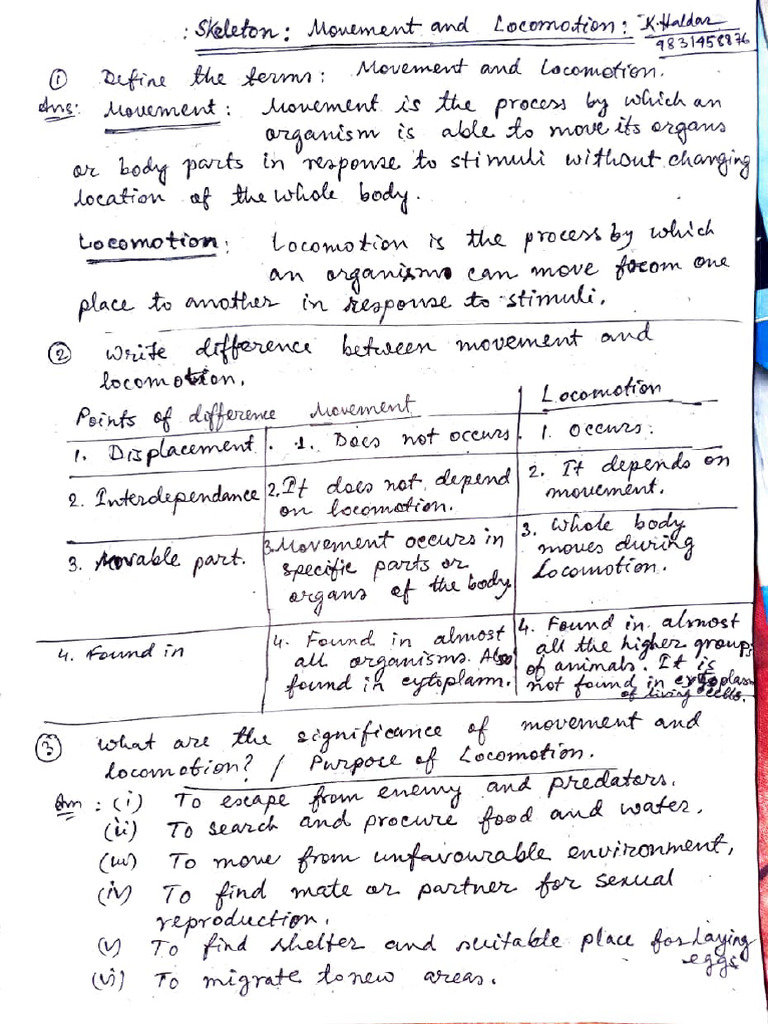 : Skeleton: Movement and Locomotion: K. Haldar
9831458876
① Define the terms: Movement and Locomotion.
Ans: Movement: Movement is the process by which an
organism is able to move its organs
or body parts in response to stimuli without changing
location of the whole body.
Locomotion: Locomotion is the process by which
an organism can move from one
place to another in response to stimuli.
② Write difference between movement and
locomotion.
Points of difference Movement Locomotion
1. Displacement 1. Does not occurs 1. occurs.
2. Interdependance 2. It does not depend 2. It depends on
on locomotion. movement.
3. Movable part. 3. Movement occurs in 3. Whole body
specific parts or moves during
organs of the body Locomotion.
4. Found in 4. Found in almost 4. Found in almost
all organisms. Also all the higher groups
found in cytoplasm. of animals. It is
not found in cytoplasm
of living cells.
③ What are the significance of movement and
locomotion? / Purpose of Locomotion.
Ans: (i) To escape from enemy and predators.
(ii) To search and procure food and water.
(iii) To move from unfavourable environment,
(iv) To find mate or partner for sexual
reproduction.
(v) To find shelter and suitable place for laying
eggs
(vi) To migrate to new areas.